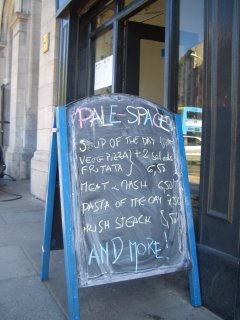 PALE-SPACE
SOUP OF THE DAY
VEGE PIZZA } + 2 Salads
FRITATA } 6,50
MEAT & MASH 6,50
PASTA OF THE DAY 7,50
IRISH STEACK 8,50
AND MORE!